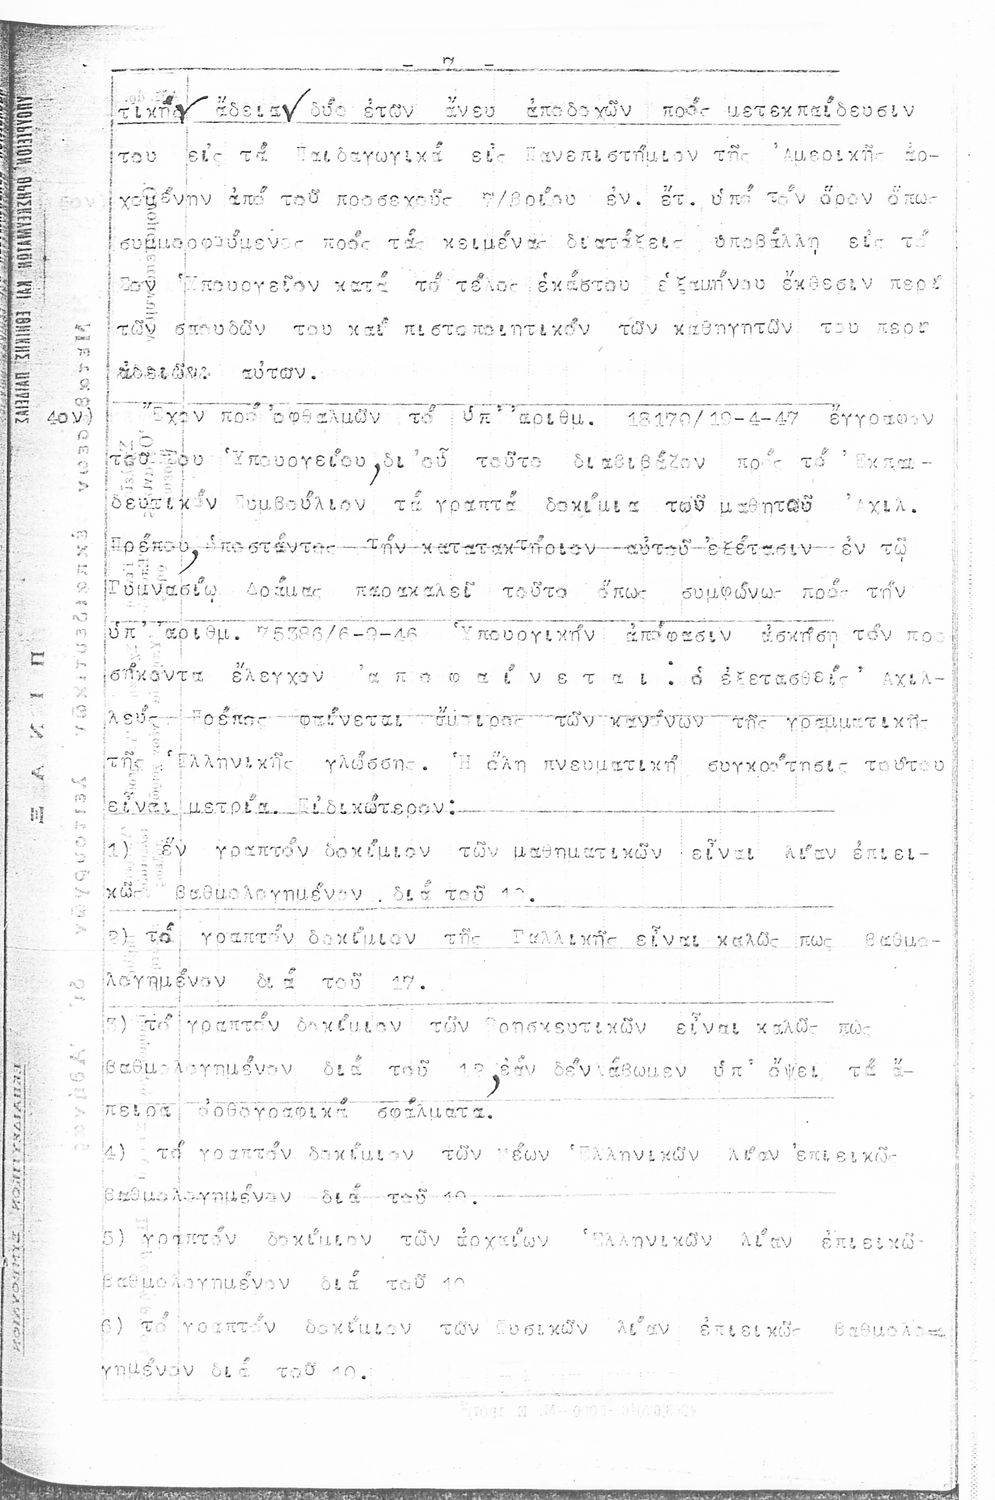 - 7 -
τικήν ἄδειαν δύο ἐτῶν ἄνευ ἀποδοχῶν πρός μετεκπαίδευσιν
του εἰς τά Παιδαγωγικά εἰς Πανεπιστήμιον τῆς Ἀμερικῆς ἀρ-
χομένην ἀπό τοῦ προσεχοῦς 7/βρίου ἐν. ἔτ. ὑπό τόν ὅρον ὅπως
συμμορφούμενος πρός τάς κειμένας διατάξεις ὑποβάλλῃ εἰς τό
Σον Ὑπουργεῖον κατά τό τέλος ἑκάστου ἑξαμήνου ἔκθεσιν περί
τῶν σπουδῶν του καί πιστοποιητικόν τῶν καθηγητῶν του περί
αὐτῶν.
4ον) Ἔχον πρό ὀφθαλμῶν τό ὑπ' ἀριθμ. 18170/19-4-47 ἔγγραφον
τοῦ Σου Ὑπουργείου, δι' οὗ τοῦτο διαβιβάζον πρός τό Ἐκπαι-
δευτικόν Συμβούλιον τά γραπτά δοκίμια τοῦ μαθητοῦ Ἀχιλ.
Πρέπου, ὑποστάντος τήν κατατακτήριον αὐτοῦ ἐξέτασιν ἐν τῷ
Γυμνασίῳ Δράμας παρακαλεῖ τοῦτο ὅπως συμφώνως πρός τήν
ὑπ' ἀριθμ. 75386/6-9-46 Ὑπουργικήν ἀπόφασιν ἀσκήσῃ τόν προ
σήκοντα ἔλεγχον ἀ π ο φ α ί ν ε τ α ι : ὁ ἐξετασθείς Ἀχιλ-
λεύς Πρέπος φαίνεται ἄμοιρος τῶν κανόνων τῆς γραμματικῆς
τῆς Ἑλληνικῆς γλώσσης. Ἡ ὅλη πνευματική συγκρότησις τούτου
εἶναι μετρία. Εἰδικώτερον:
1) ἕν γραπτόν δοκίμιον τῶν μαθηματικῶν εἶναι λίαν ἐπιει-
κῶς βαθμολογημένον διά τοῦ 10.
2) τό γραπτόν δοκίμιον τῆς Γαλλικῆς εἶναι καλῶς πως βαθμο-
λογημένον διά τοῦ 17.
3) τό γραπτόν δοκίμιον τῶν Θρησκευτικῶν εἶναι καλῶς πως
βαθμολογημένον διά τοῦ 12, ἐάν δέν λάβωμεν ὑπ' ὄψει τά ἄ-
πειρα ὀρθογραφικά σφάλματα.
4) τό γραπτόν δοκίμιον τῶν Νέων Ἑλληνικῶν λίαν ἐπιεικῶς
βαθμολογημένον διά τοῦ 10.
5) γραπτόν δοκίμιον τῶν ἀρχαίων Ἑλληνικῶν λίαν ἐπιεικῶς
βαθμολογημένον διά τοῦ 10
6) τό γραπτόν δοκίμιον τῶν Φυσικῶν λίαν ἐπιεικῶς βαθμολο-
γημένον διά τοῦ 10.